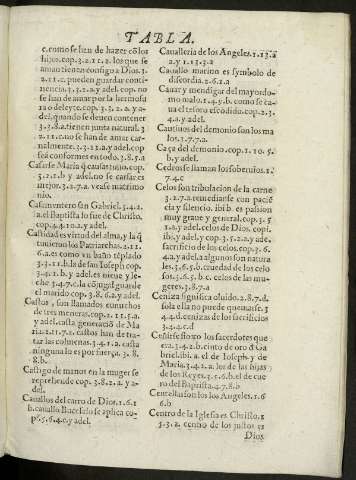 TABLA.
c. como se han de hazer cõ los
hijos. cop. 3.2.1.c.2. los que se
aman tienen consigo a Dios. 3.
2.11.c. pueden guardar conti-
nencia. 3.3.2.1.a y adel. cop. no
se han de amar por la hermosu
ra o deleyte. cop. 3.2.2. a y a-
del. quando se deuen contener
3.3.8.a tienen junta natural. 3
2.11.c. no se han de amar car-
nalmente. 3.3.11.a y adel. cop
fea conformes en todo. 3.8.5.a
Casarse Maria q̃ causas tuuo. cop.
3.2.1. b y adel. no se casar es
mejor. 3.2.7.a. vease matrimo
nio.
Casamentero san Gabriel. 3.4.2.
a. el Baptista lo fue de Christo.
cop. 4.4.10.a. y adel.
Castidad es virtud del alma, y la q̃
tuuieron los Patriarchas. 2.11.
6.a. es como vn baño téplado
3.3.11.b. la de san Ioseph cop.
3.4.2. b. y adel. es nieue y le-
che 3.4.7.c. la cójugal guarde
el marido cop. 3.8.6.2. y adel.
Castos, son llamados eunuchos
de tres maneras. cop. 2.11.5.a.
y adel. casta generació de Ma
ria. 2.11.7.c. castos han de tra-
tar las columnas. 3.4.1.a. casta
ninguna lo es por fuerça. 3.8.
8.b.
Castigo de manos en la muger se
reprehende cop. 3.8.2.a. y a-
del.
Cauallos del carro de Dios. 1.6.1
b. cauallo Bucefalo se aplica co-
p. 6.5.6.4.c. y adel.
Caualleria de los Angeles. 1.13.2
a. y 1.13.3.2
Cauallo marion es symbolo de
discordia. 2.1.6.a
Cauar y mendigar del mayordo-
mo malo. 1.4.5.b. como se ca-
ua el tesoro escódido. cop. 2.3.
4.a. y adel.
Cautiuos del demonio son los ma
los. 1.7.7.a.
Caça del demonio. cop. 1.10.5.
b. y adel.
Cedros se llaman los soberuios. 1.
7.4.c
Celos son tribulacion de la carne
3.2.7.a. remedianse con pacié
cia y silencio. ibi b. es passion
muy graue y general. cop. 3.5
1.a. y adel. celos de Dios. copi.
ibi. y adel. y cop. 3.5.2.a. y ade.
sacrificio de los celos. cop. 3.6.
4.a. y adel. a algunos son natura
les. 3.6.5.b. crueldad de los celo
sos. 3.6.5.b.c. celos de las mu-
geres. 3.8.7.a
Ceniza significa oluido. 2.8.7.d.
sola ella no puede quemarse. 3
4.4.d. cenizas de los sacrificios
3.4.4.c.d
Ceñirse sixo los sacerdotes que
era. 3.4.2.b. cinto de oro d̃ Ga
briel. ibi. a. el de Ioseph. y de
Maria. 3.4.2.a. los de las hijas
de los Reyes. 3.5.6.b. el de cue
ro del Baptista. 4.7.8.b
Centellas son los los Angeles. 1.6
6.b
Centro de la Iglesia es Christo. 1.
3.3.2. centro de los justos es
Dios